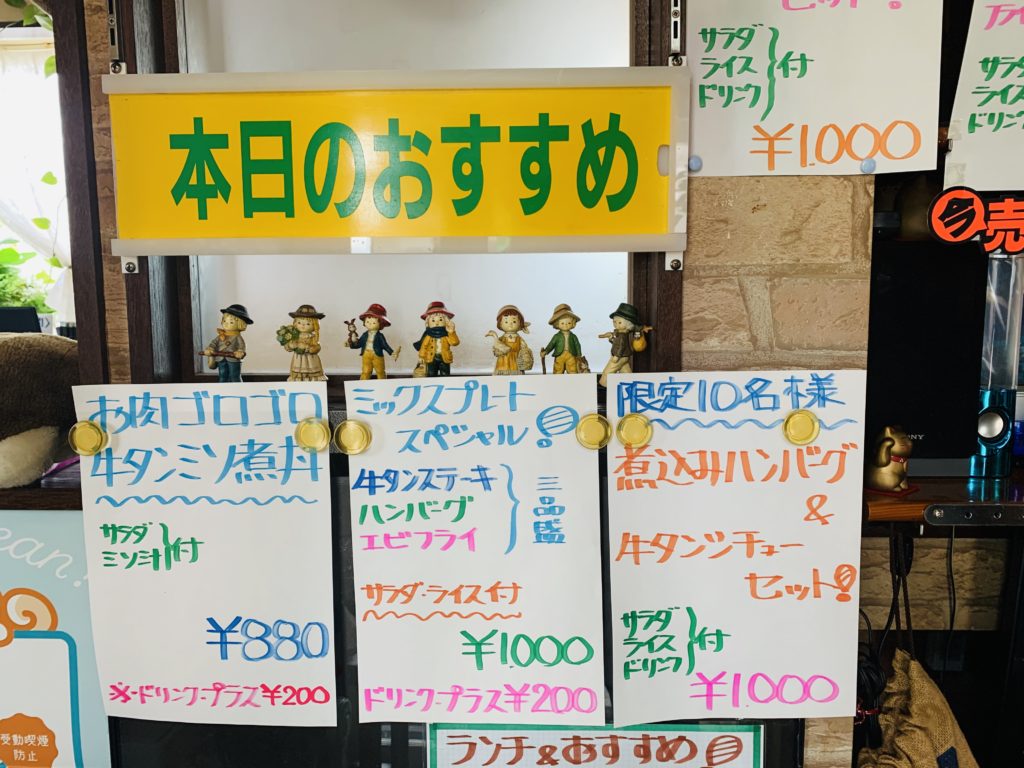 セット!
サラダ
ライス
ドリンク
付
¥1.000
サラダ
ライス
ドリンク
売
本日のおすすめ
お肉ゴロゴロ
牛タンミソ煮丼
サラダ
ミソ汁
付
¥880
※・ドリンクプラス¥200
ミックスプレート
スペシャル!
牛タンステーキ
ハンバーグ
エビフライ
三品盛
サラダ・ライス付
¥1.000
ドリンクプラス¥200
限定10名様
煮込みハンバーグ
&
牛タンシチュー
セット!
サラダ
ライス
ドリンク
付
¥1.000
SONY
ean!
受動喫煙
防止
ランチ&おすすめ!